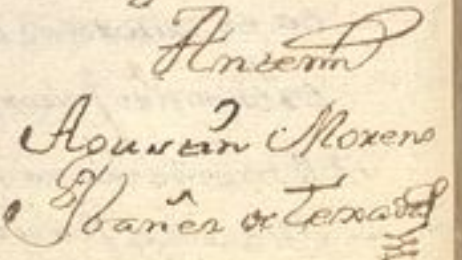 Antem
Agustin Moreno
Ybañes de Texada